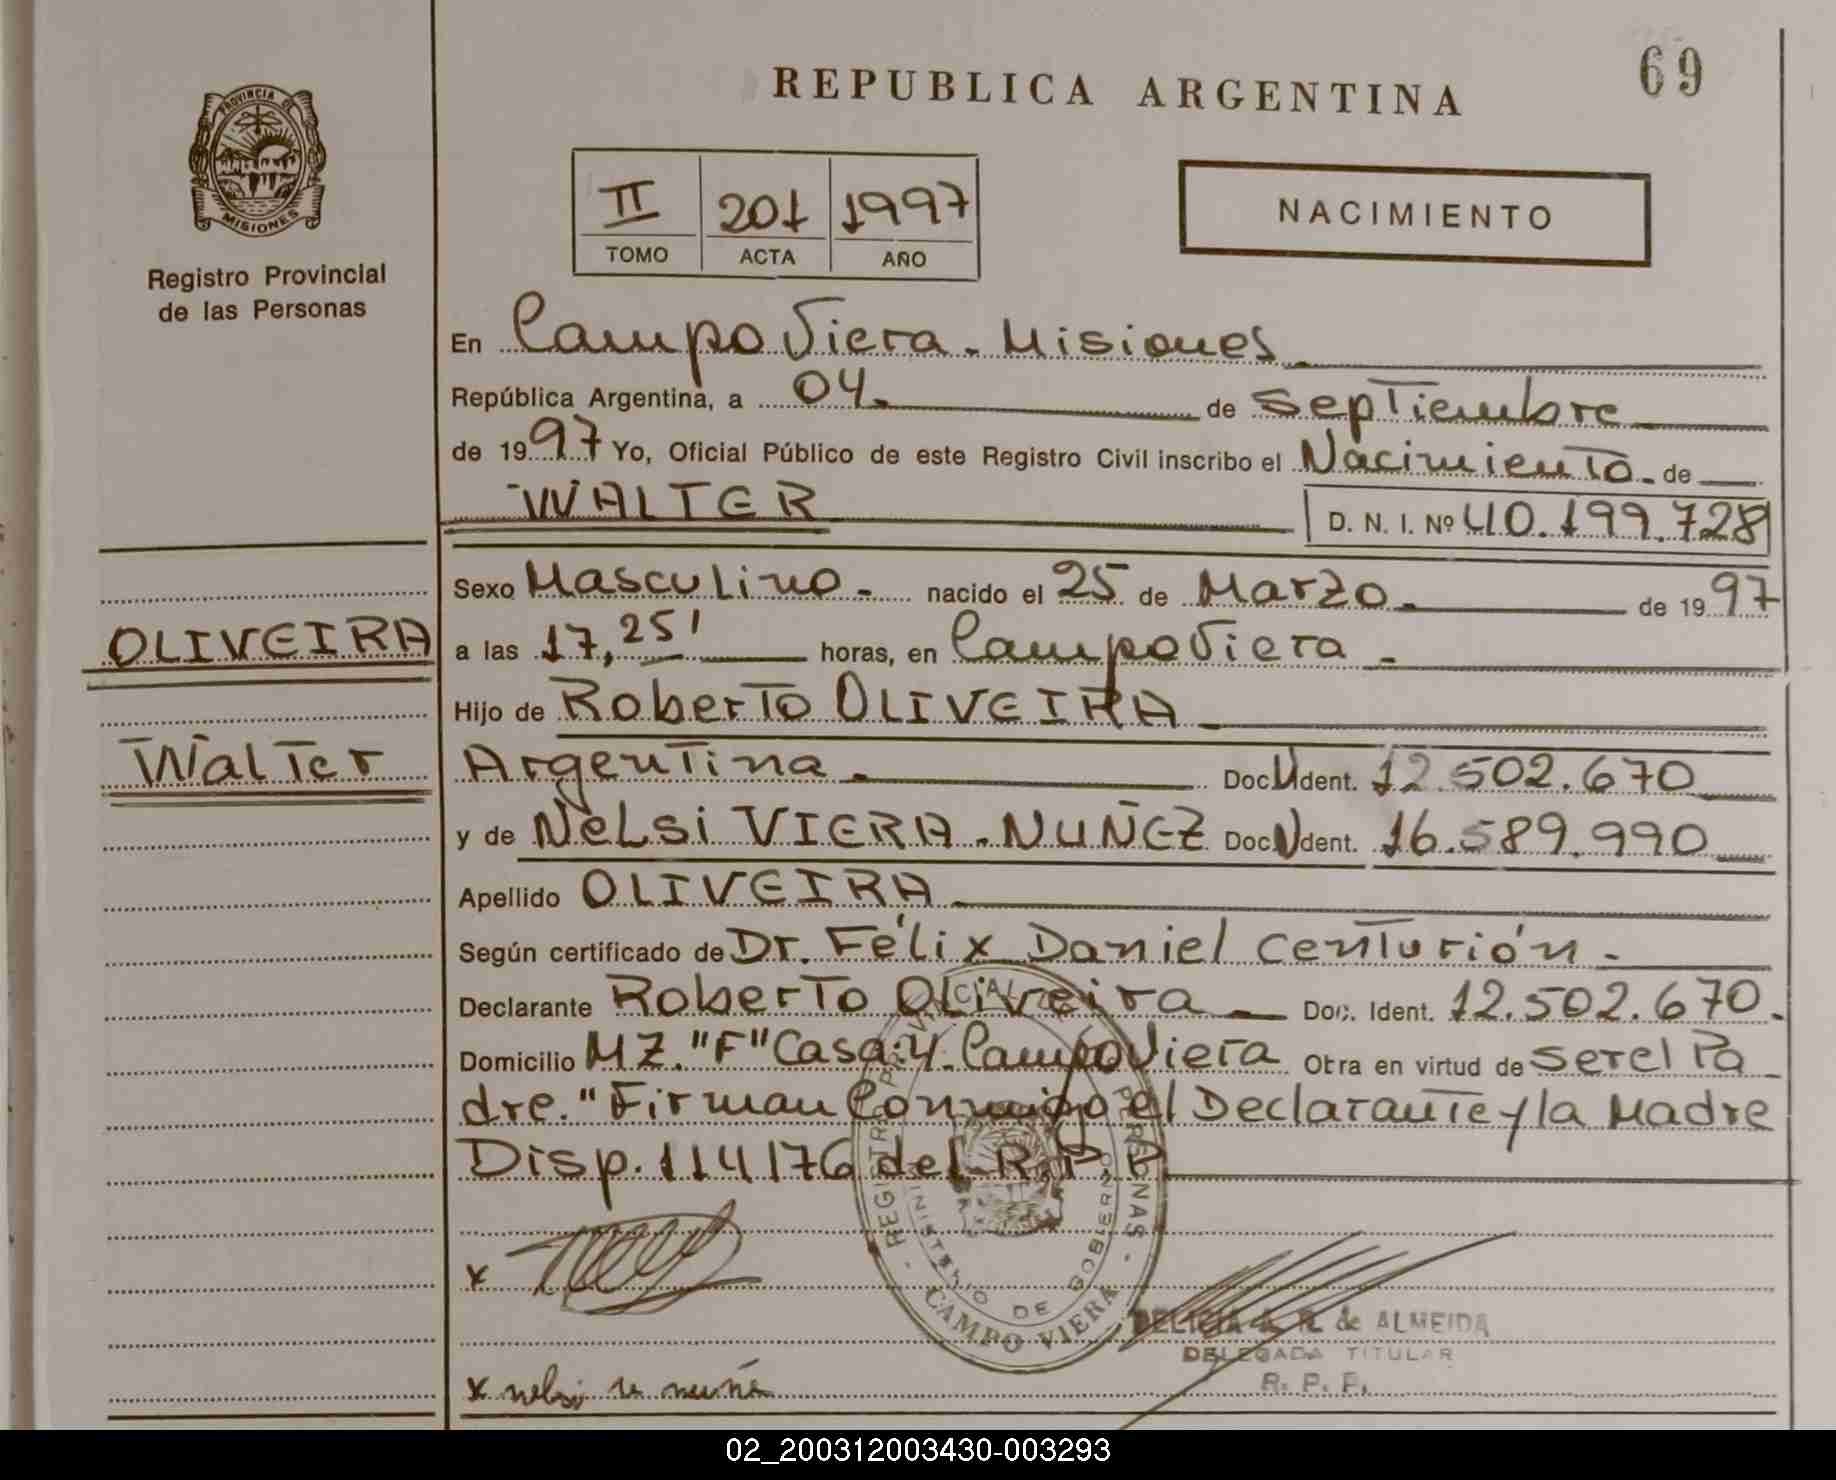 69
REPUBLICA ARGENTINA
PROVINCIA DE
MISIONES
Registro Provincial
de las Personas
II 201 1997
TOMO ACTA AÑO
NACIMIENTO
En Campo Viera - Misiones
República Argentina, a 04. de Septiembre
de 1997 Yo, Oficial Público de este Registro Civil inscribo el Nacimiento de
WALTER D. N. I. Nº 40.199.728
Sexo Masculino nacido el 25 de Marzo de 1997
OLIVEIRA
a las 17,25' horas, en Campo Viera
Hijo de Roberto OLIVEIRA
Walter
Argentina Doc. Ident. 12.502.670
y de NeLsi VIERA - NUÑEZ Doc. Ident. 16.589.990
Apellido OLIVEIRA
Según certificado de Dr. Félix Daniel Centurión
Declarante Roberto OLiveira Doc. Ident. 12.502.670.
Domicilio MZ. "F" Casa: 4. Campo Viera Obra en virtud de ser el Pa
dre." Firman Conmigo el Declarante y la Madre
Disp. 114/76 del R.P.P.
REGISTRO PROVINCIAL DE PERSONAS
MINISTERIO DE GOBIERNO
CAMPO VIERA
x
DELICIA A. R. de ALMEIDA
DELEGADA TITULAR
R. P. P.
x nelsi
02_200312003430-003293